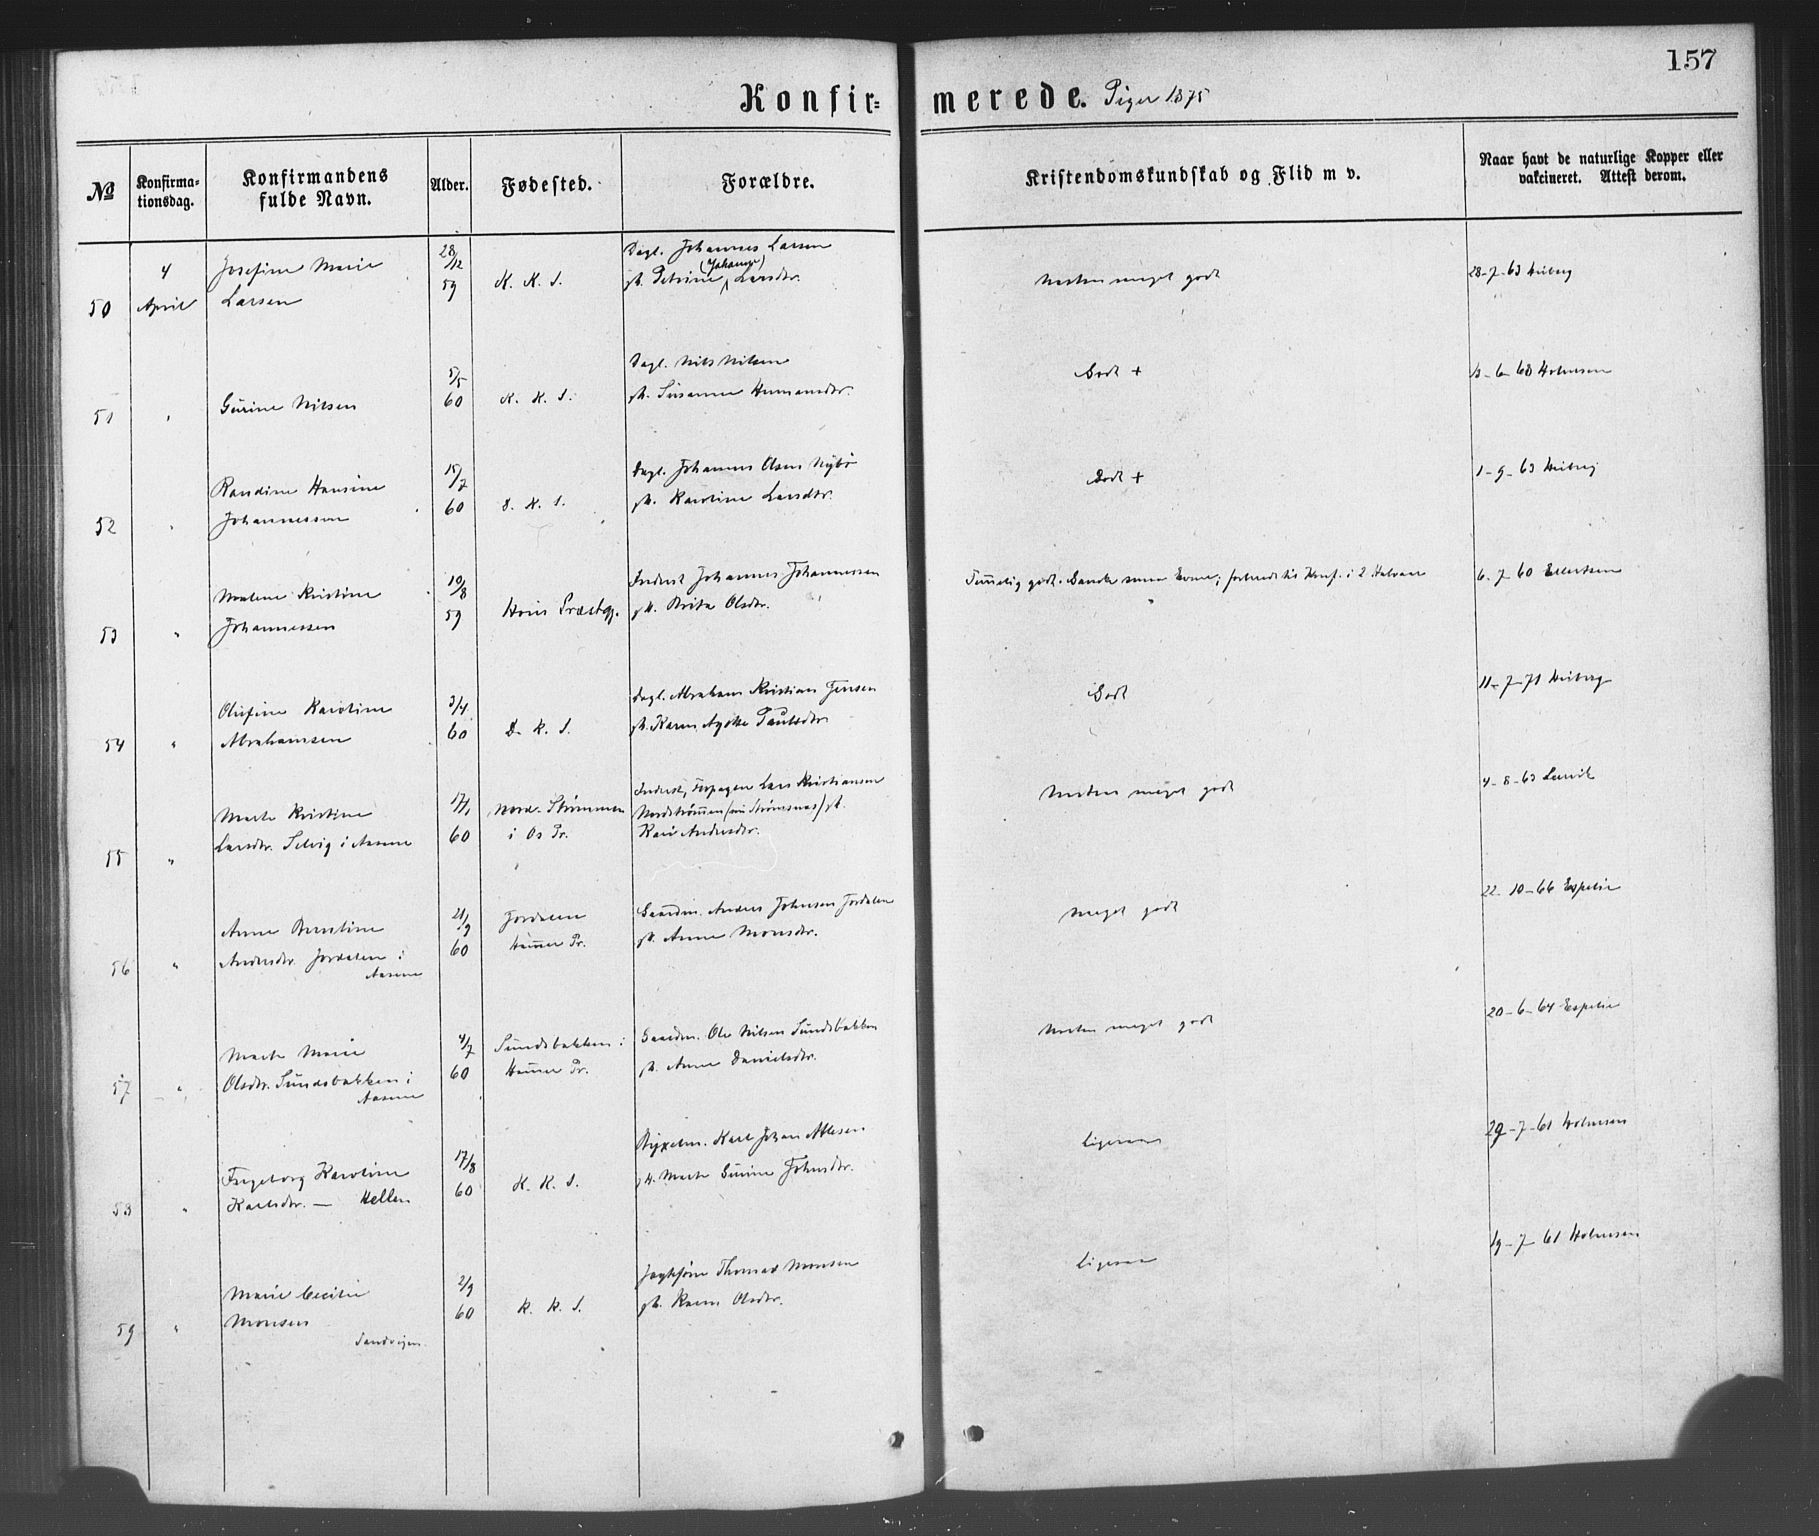 157
Konfir= merede. Piger 1875
№
Konfirma-
tionsdag.
Konfirmandens
fulde Navn.
Alder.
Fødested.
Forældre.
Kristendomskundskab og Flid m v.
Naar havt de naturlige Kopper eller
vakcineret. Attest derom.
50
4
April
Josefine Marie
Larsen
28/12
59
K. K. S.
Dagl. Johannes Larsen
(Johanne)
Petrine Larsdtr.
Næsten meget godt
28-7-63 Wiberg
51
Gurine Nilsen
5/5
60
K. K. S.
Dagl. Nils Nilsen
Susanne Hermansdtr.
Godt +
6-68 Holmsen
52
Randine Hansine
Johannessen
15/7
60
D. K. S.
Dagl. Johannes Olsen Nybø
Karoline Larsdtr.
Godt +
1-9-63 Wiberg
53
"
Malene Kristine
Johannessen
10/8
59
Hous Præstegj.
Inderst Johannes Johannessen
Brita Olsdtr.
Temmelig godt. Ganske Evner; i 2 Halvaar
6-7-60 Ellertsen
54
"
Olufine Karoline
Abrahamsen
3/4
60
D. K. S.
Dagl. Abraham Kristian Jensen
Karen Agathe Paulsdtr.
Godt
11-7-71 Wiberg
55
"
Marta Kristine
Larsdtr. Selvig i Aasene
17/1
60
Nordre Strømmen
i Os Pr.
Inderst, Lars Kristiansen
Nordstrømmen (nu Strømsnæs)
Kari Andersdtr.
Næsten meget godt
4-8-63 Lervik
56
"
Anne Berntine
Andersdtr. Jordalen i
Aasene
21/9
60
Jordalen
Hammer Pr.
Gaardm. Anders Johnsen Jordalen
Anne Monsdtr.
Meget godt
22-10-66 Espelie
57
"
Marta Marie
Olsdtr. Sundsbakken i
Aasene
4/7
60
Sundsbakken i
Hammer Pr.
Gaardm. Ole Nilsen Sundsbakken
Anne Danielsdtr.
Næsten meget godt
20-6-64 Espelie
58
"
Ingeborg Karoline
Karlsdtr. — Hellen
17/8
60
K. K. S.
Karl Johan
Marta Gurine Johnsdtr.
ligesaa
29-7-61 Holmsen
59
"
Marie Cecilie
Monsen
Sandvigen
2/9
60
K. K. S.
Thomas Monsen
Karen Olsdtr.
ligesaa
19-7-61 Holmsen